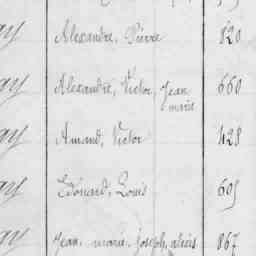 ay Alexandre, Pierre 820
ay Alexandre, Victor, Jean marie 660
ay Amand, Victor 428
ay Edouard, Louis 605
ay Jean, marie, Joseph, alexis 867